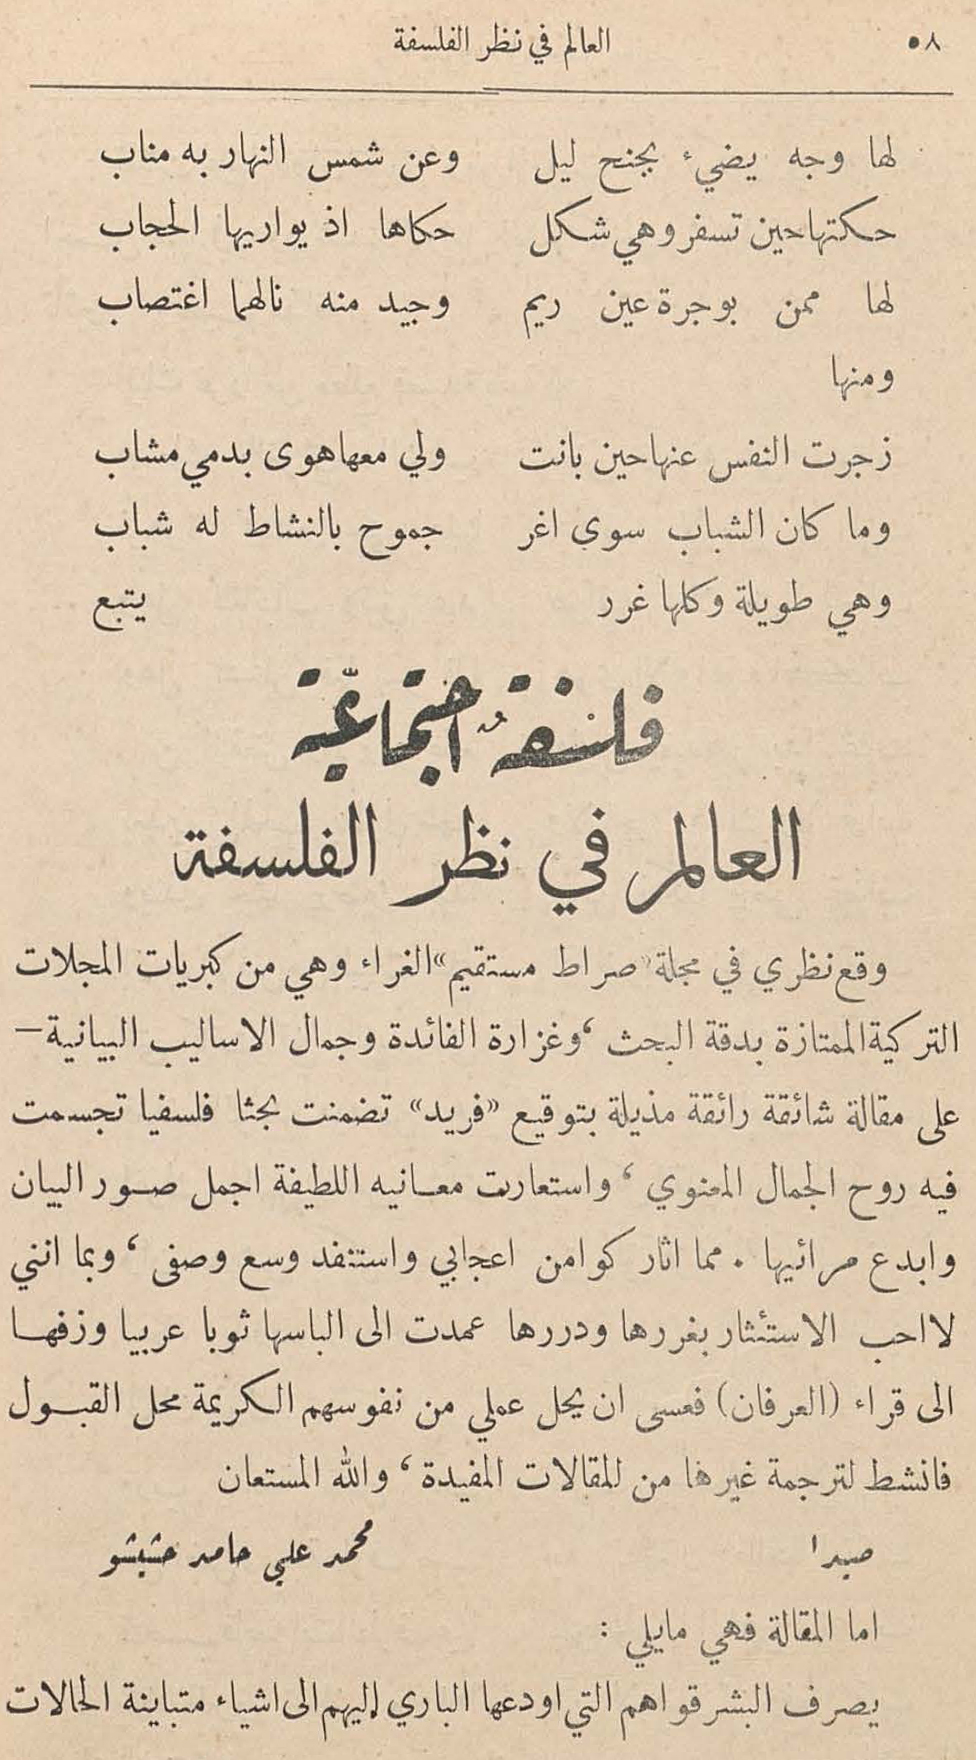 ٥٨ العالم في نظر الفلسفة
لها وجه يضيء بجنح ليل وعن شمس النهار به مناب
حكتها حين تسفر وهي شكل حكاها اذ يواريها الحجاب
لها ممن بوجرة عين ريم وجيد منه نالهما اغتصاب
ومنها
زجرت النفس عنها حين بانت ولي معها هوى بدمي مشاب
وما كان الشباب سوى اغر جموح بالنشاط له شباب
وهي طويلة وكلها غرر يتبع
فلسفة اجتماعيّة
العالم في نظر الفلسفة
وقع نظري في مجلة «صراط مستقيم» الغراء وهي من كبريات المجلات
التركية الممتازة بدقة البحث ، وغزارة الفائدة وجمال الاساليب البيانية –
على مقالة شائقة رائقة مذيلة بتوقيع «فريد» تضمنت بحثا فلسفيا تجسمت
فيه روح الجمال المعنوي ، واستعارت معانيه اللطيفة اجمل صور البيان
وابدع مرائيها . مما اثار كوامن اعجابي واستنفد وسع وصفى ، وبما انني
لا احب الاستئثار بغررها ودررها عمدت الى الباسها ثوبا عربيا وزفها
الى قراء (العرفان) فعسى ان يحل عملي من نفوسهم الكريمة محل القبول
فانشط لترجمة غيرها من المقالات المفيدة ، والله المستعان
صيدا محمد علي حامد حشيشو
اما المقالة فهي مايلي :
يصرف البشر قواهم التي اودعها الباري اليهم الى اشياء متباينة الحالات